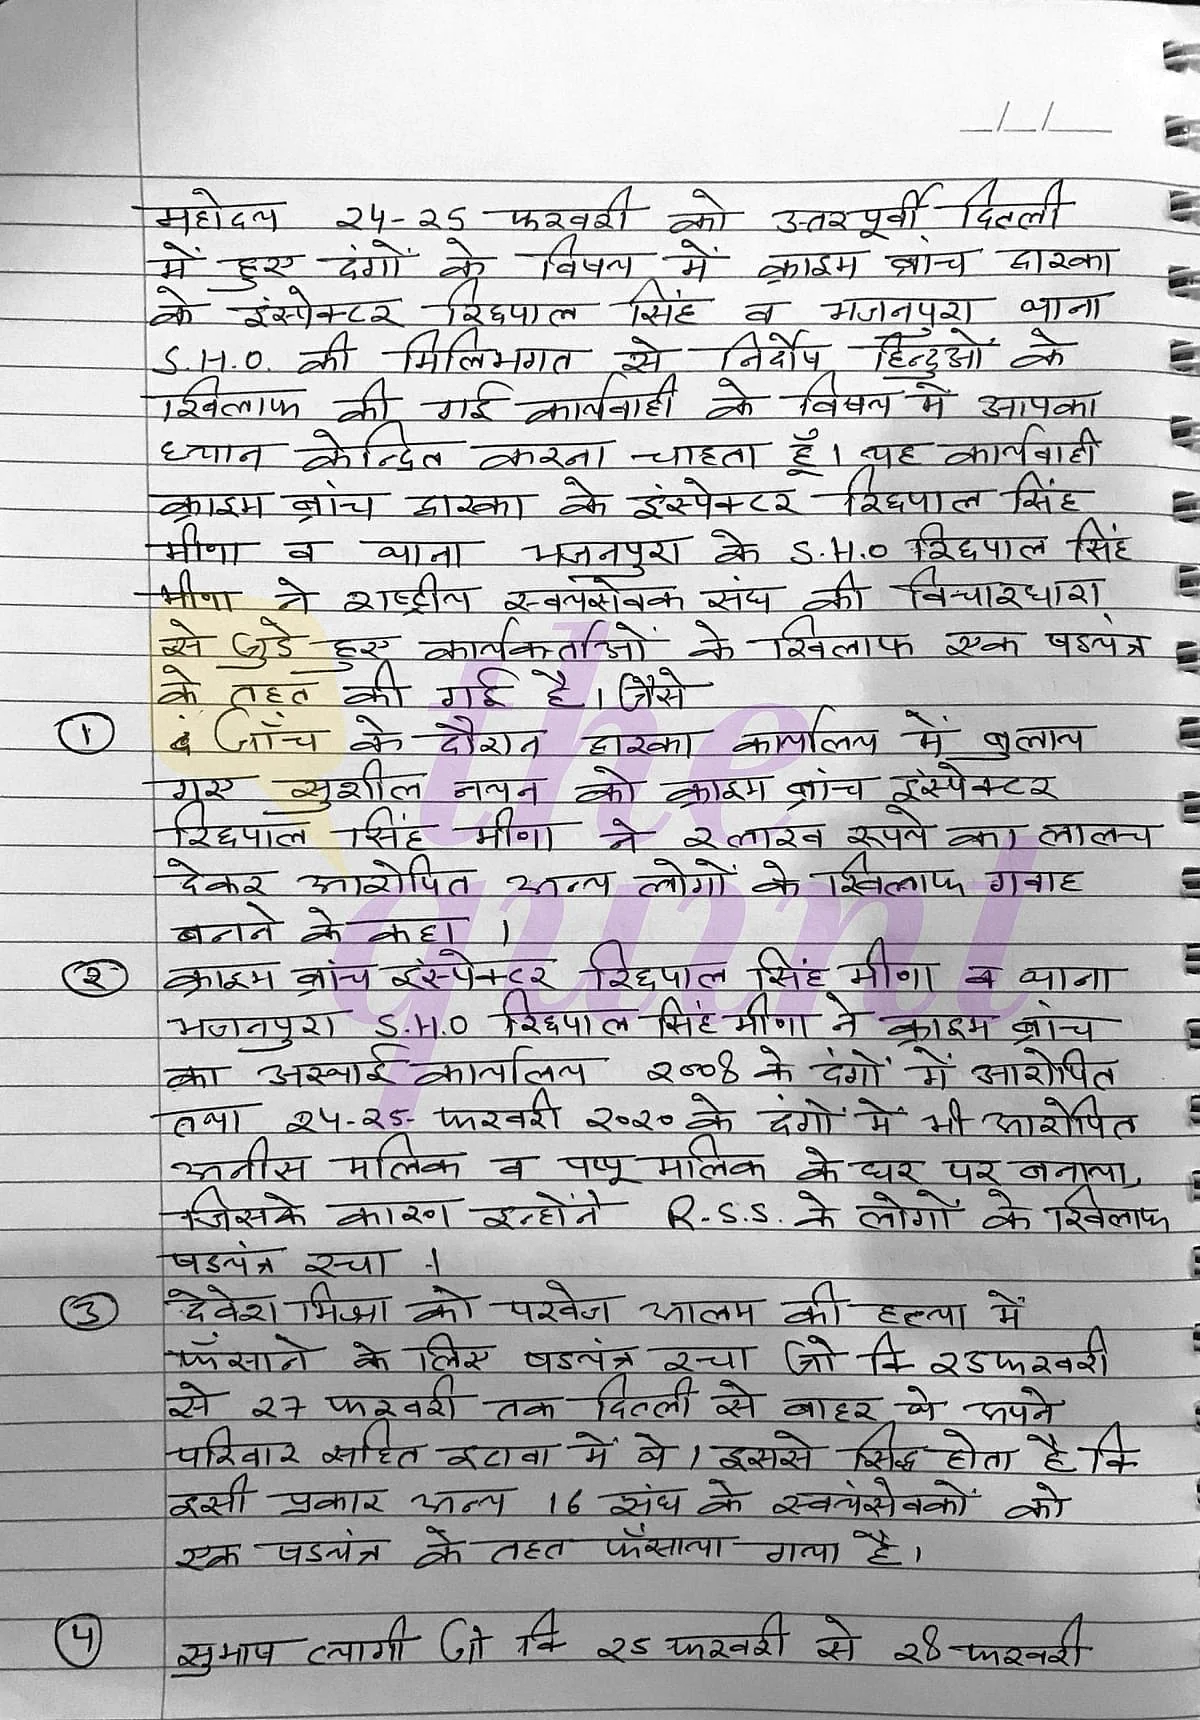 महोदय २4-२5 फरवरी को उत्तरपूर्वी दिल्ली
में हुए दंगों के विषय में क्राइम ब्रांच द्वारका
के इंस्पेक्टर रिछपाल सिंह व भजनपुरा थाना
S.H.O. की मिलिभगत से निर्दोष हिन्दुओं के
खिलाफ की गई कार्यवाही के विषय में आपका
ध्यान केन्द्रित करना चाहता हूँ। यह कार्यवाही
क्राइम ब्रांच द्वारका के इंस्पेक्टर रिछपाल सिंह
मीणा व थाना भजनपुरा के S.H.O रिछपाल सिंह
मीणा ने राष्ट्रीय स्वयंसेवक संघ की विचारधारा
से जुडे हुए कार्यकर्ताओं के खिलाफ एक षडयंत्र
के तहत की गई है। जैसे
① जाँच के दौरान द्वारका कार्यालय में बुलाय
गए सुशील नयन को क्राइम ब्रांच इंस्पेक्टर
रिछपाल सिंह मीणा ने २ लाख रूपये का लालच
देकर आरोपित अन्य लोगों के खिलाफ गवाह
बनने के कहा ।
② क्राइम ब्रांच इंस्पेक्टर रिछपाल सिंह मीणा व थाना
भजनपुरा S.H.O रिछपाल सिंह मीणा ने क्राइम ब्रांच
का अस्थाई कार्यालय २००8 के दंगों में आरोपित
तथा २4-२5- फरवरी २०२० के दंगों में भी आरोपित
अनीस मलिक व पप्पू मलिक के घर पर बनाया,
जिसके कारण इन्होंने R.S.S. के लोगों के खिलाफ
षडयंत्र रचा ।
③ देवेश मिश्रा को परवेज आलम की हत्या में
फँसाने के लिए षडयंत्र रचा जो कि २5 फरवरी
से २7 फरवरी तक दिल्ली से बाहर थे अपने
परिवार सहित इटावा में थे। इससे सिद्ध होता है कि
इसी प्रकार अन्य 16 संघ के स्वयंसेवकों को
एक षडयंत्र के तहत फँसाया गया है।
④ सुभाष त्यागी जो कि २5 फरवरी से २8 फरवरी
the
quint